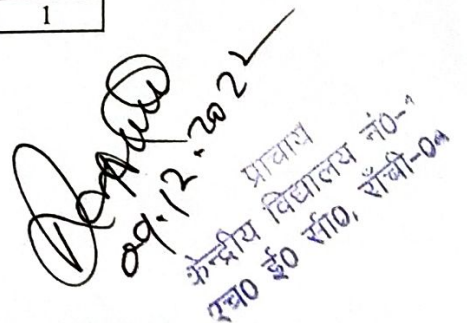 1
09.12.2022
प्राचार्य
केन्द्रीय विद्यालय नं०-१
एच० ई० सी०, राँची-04